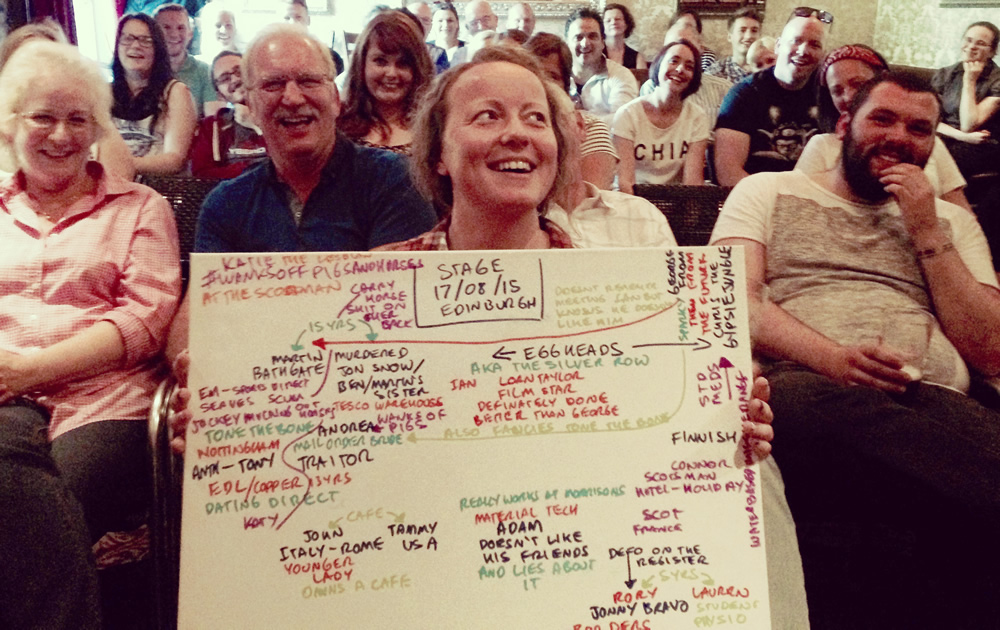 KATIE THE
#WANKSOFFPIGSANDHORSES
AT THE SCOTSMAN
CARRY
HORSE
SUIT ON
HER
BACK
STAGE
17/08/15
EDINBURGH
DOESN'T REMEMBER
MEETING IAN BUT
KNOWS HE DOESN'T
LIKE HIM
GEORGE
SPARKY FROM
THEM FROM
THE FUTURE
CHRIS THE
GYPSIESJUNGLE
15YRS
MARTIN
BATHGATE
EM-SPORT DIRECT
SERVES SCUM
JOCKEY MUCKING OUT HORSES
TONE THE BONE
NOTTINGHAM
ANTH-TONY
EDL/COPPER 13YRS
DATING DIRECT
KATY
MURDERED
JON SNOW/
BEN/MARTIN'S
SISTER
TESCO WAREHOUSE
ANDREA
WANKS OFF
PIGS
MAIL ORDER BRIDE
TRAITOR
EGGHEADS
AKA THE SILVER ROW
IAN LORN TAYLOR
FILM STAR
DEFINATELY DONE
BETTER THAN GEORGE
ALSO FANCIES TONE THE BONE
STD
MEDS
FINNISH
CONNOR
SCOTSMAN
HOTEL-HOLIDAY
SCOT
FRANCE
CAFE
JOHN
ITALY-ROME
YOUNGER
LADY
OWNS A CAFE
TAMMY
USA
REALLY WORKS AT MORRISONS
MATERIAL TECH
ADAM
DOESN'T LIKE
HIS FRIENDS
AND LIES ABOUT
IT
DEFO ON THE
REGISTER
5YRS
RORY
JONNY BRAVO
LAUREN
STUDENT
PHYSIO
CHIA